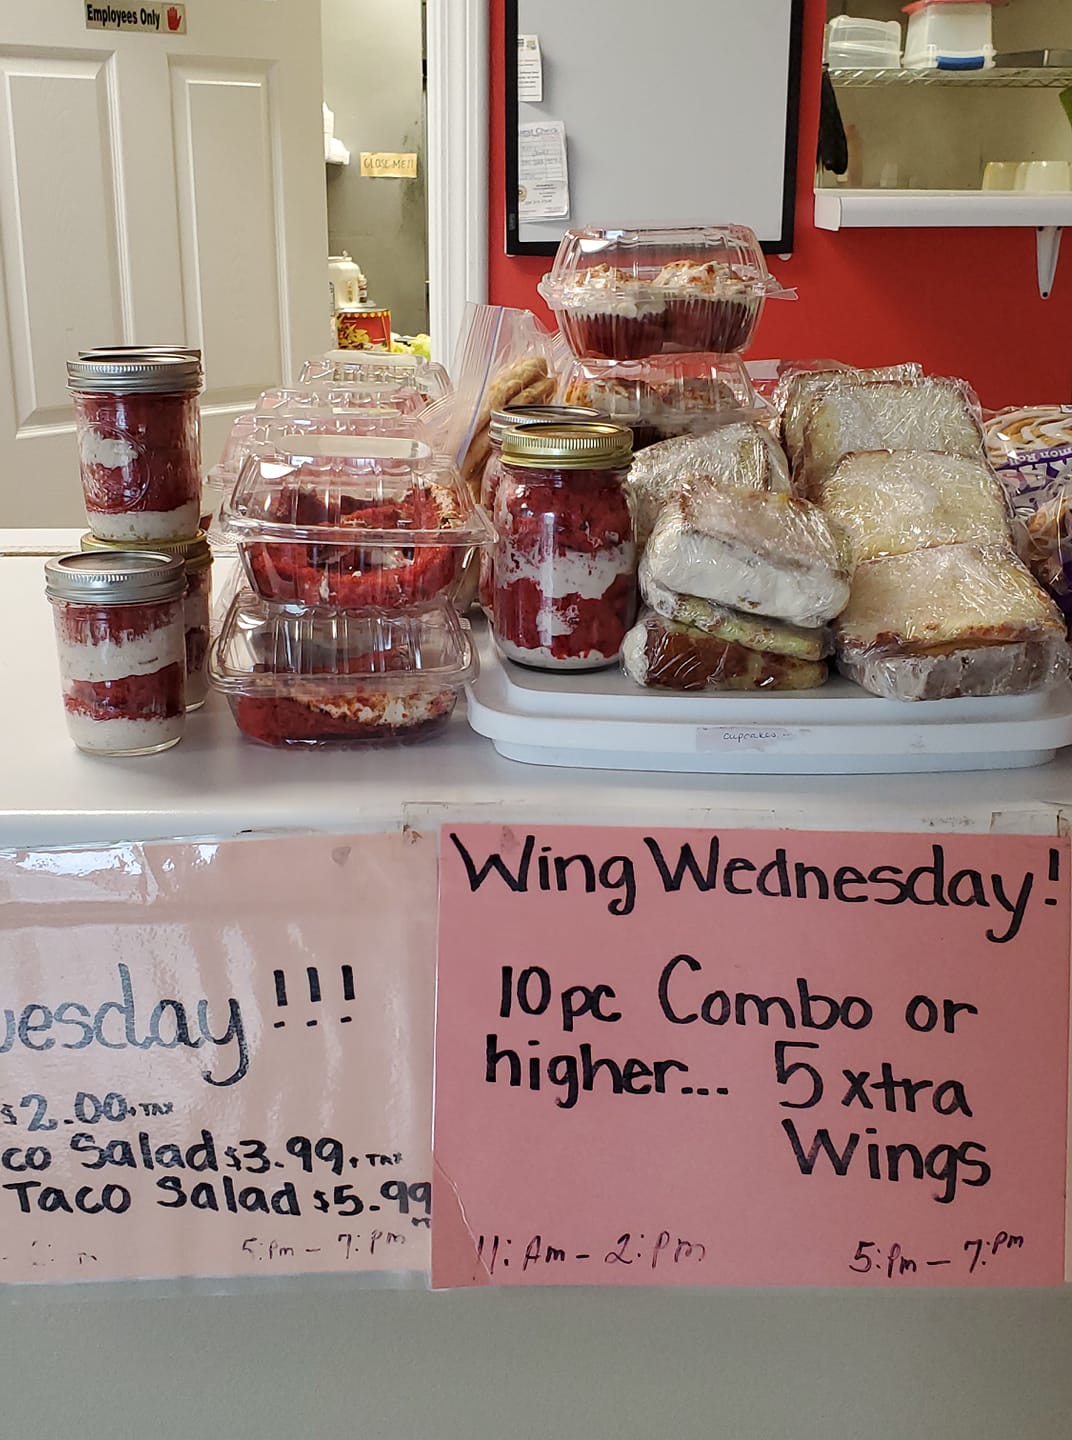 Employees Only
CLOSE ME!!
Guest Check
mon Roll
cupcakes
uesday!!!
$2.00+TAX
co Salad $3.99+TAX
Taco Salad $5.99
5:pm – 7:pm
Wing Wednesday!
10pc Combo or
higher... 5 xtra
Wings
11:Am – 2:pm 5:pm – 7:pm